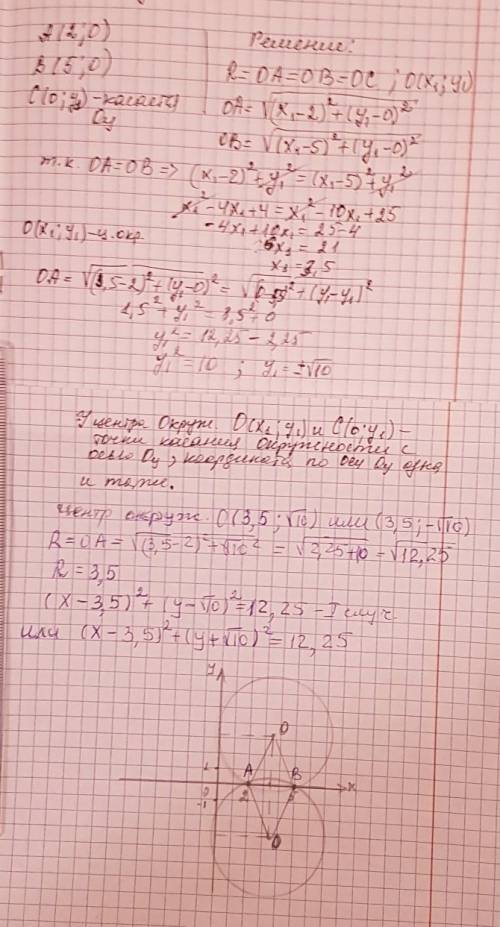 A(2;0)
B(5;0)
C(0;y₁)-касается
Oy
Решение:
R=OA=OB=OC ; O(x₁;y₁)
OA=√(x₁-2)²+(y₁-0)²
OB=√(x₁-5)²+(y₁-0)²
т.к. OA=OB => (x₁-2)²+y₁²=(x₁-5)²+y₁²
x₁²-4x₁+4=x₁²-10x₁+25
-4x₁+10x₁=25-4
6x₁=21
x₁=3,5
O(x₁;y₁)-ц.окр.
OA=√(3,5-2)²+(y₁-0)²=√(0-3,5)²+(y₁-y₁)²
1,5²+y₁²=3,5²+0
y₁²=12,25-2,25
y₁²=10 ; y₁=±√10
У центра окруж. O(x₁;y₁) и C(0;y₁)-
точки касания окружности с
осью Oy, координата по оси Oy одна
и та же.
Центр окруж. O(3,5;√10) или (3,5;-√10)
R=OA=√(3,5-2)²+√10²=√2,25+10=√12,25
R=3,5
(x-3,5)²+(y-√10)²=12,25-I случ.
или (x-3,5)²+(y+√10)²=12,25
y
O
1
A B
0 2 5 x
-1
O